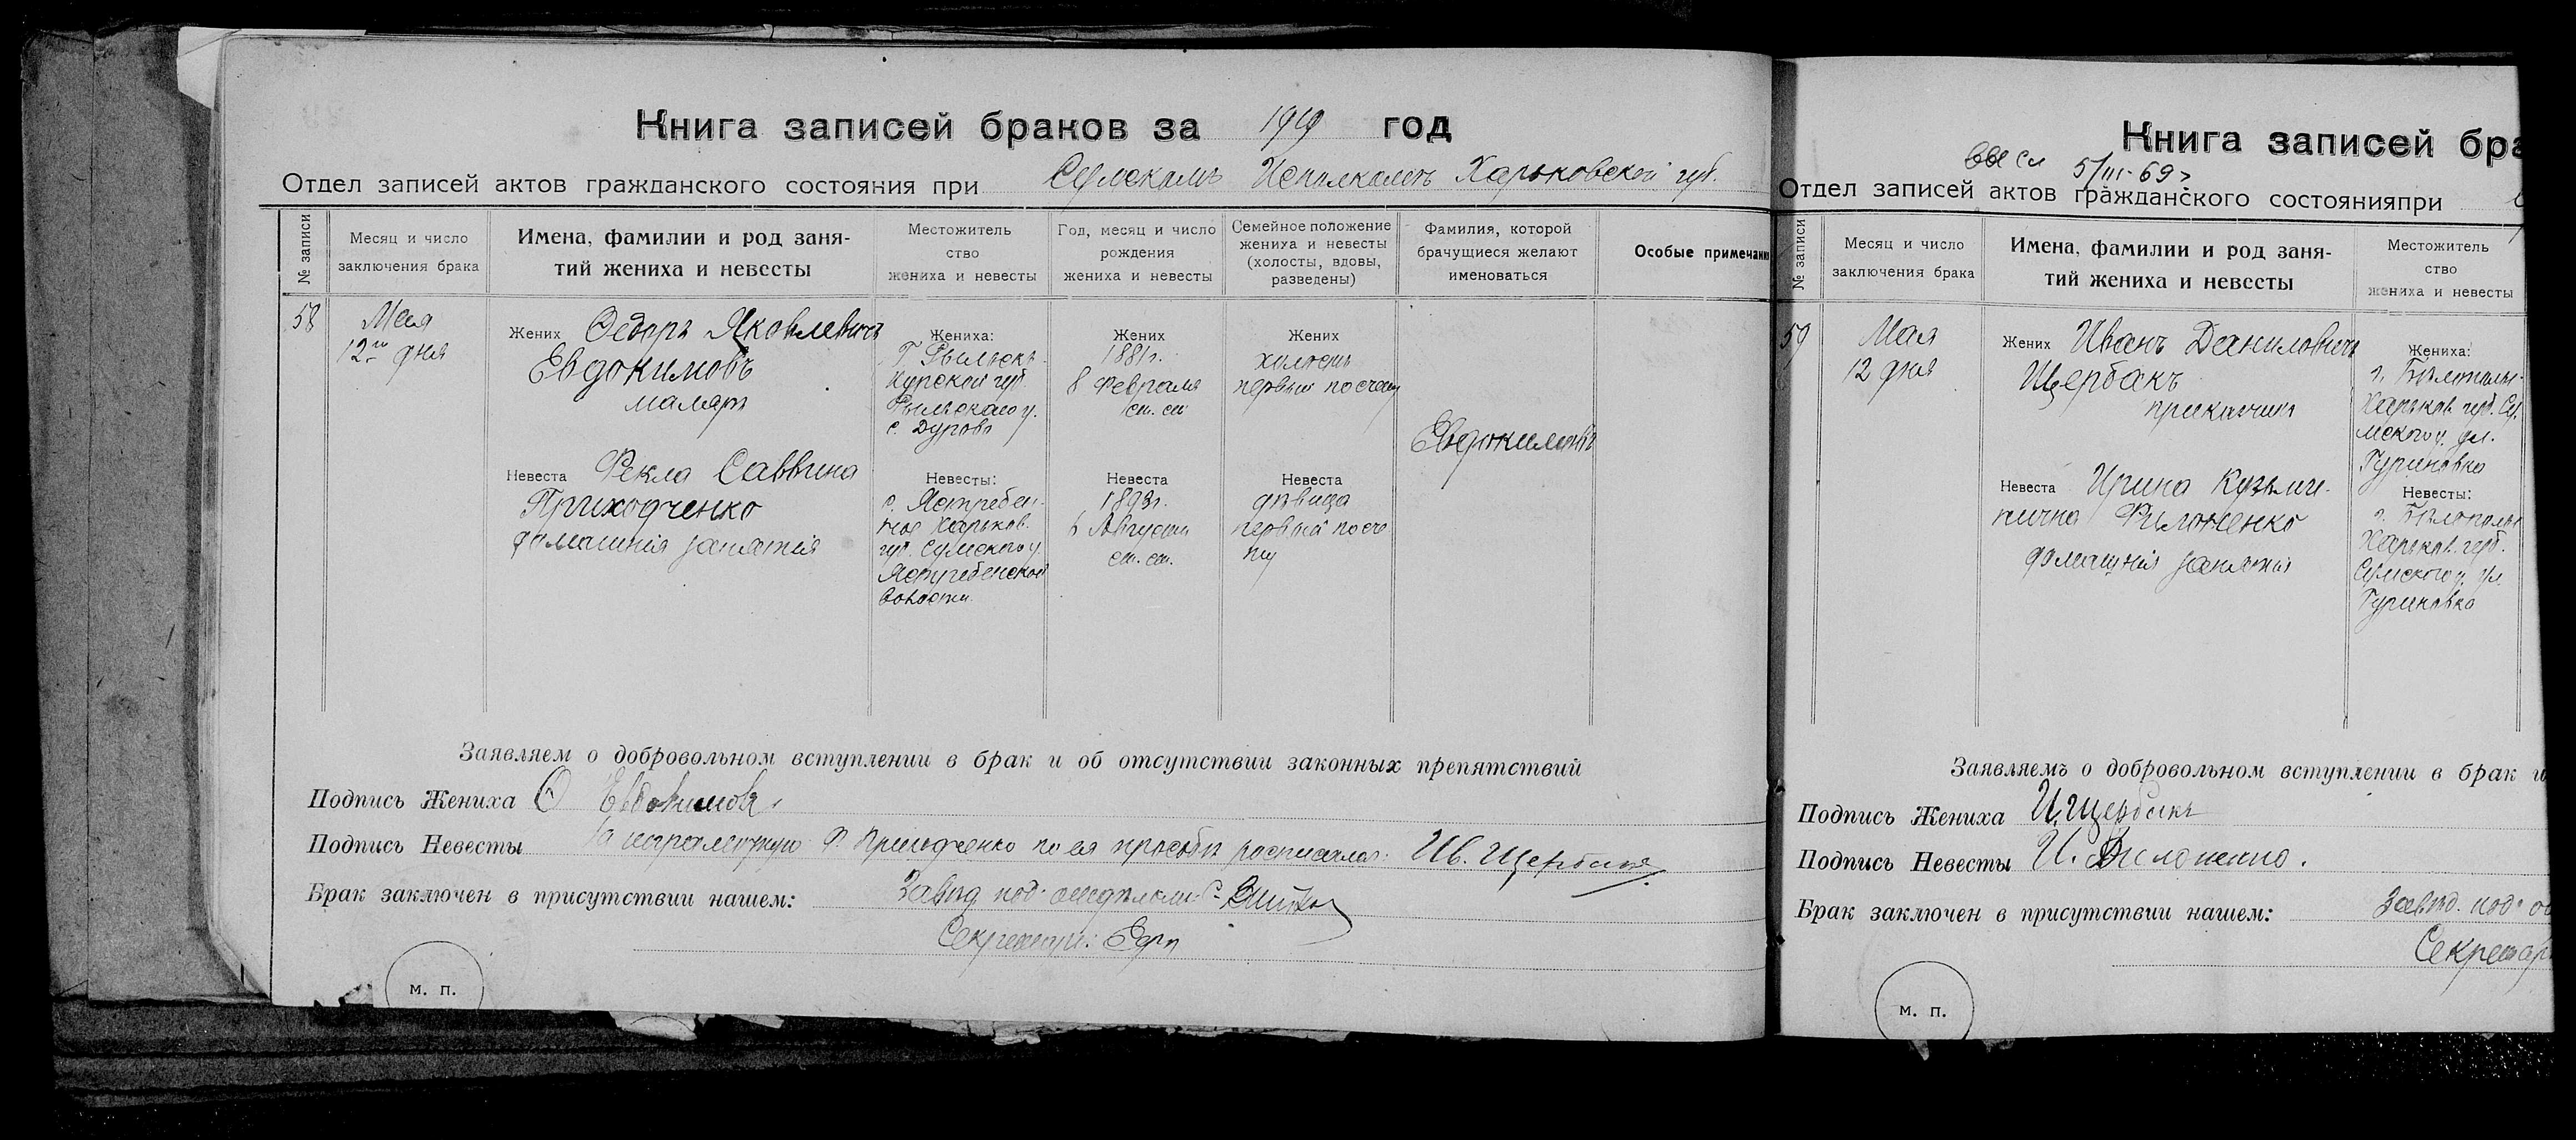 Книга записей браков за 1919 год
Отдел записей актов гражданского состояния при Сумскомъ Исполкомѣ Харьковской губ.
№ записи
Месяц и число
заключения брака
Имена, фамилии и род заня-
тий жениха и невесты
Местожитель
ство
жениха и невесты
Год, месяц и число
рождения
жениха и невесты
Семейное положение
жениха и невесты
(холосты, вдовы,
разведены)
Фамилия, которой
брачущиеся желают
именоваться
Особые примечани
58
Мая
12го дня
Жених Ѳедоръ Яковлевичъ
Евдокимовъ
маляръ
Невеста Фекла Саввина
Приходченко
домашнія занятія
Жениха:
Г. Рыльскъ
Курской губ.
Рыльскаго у.
с. Дурово
Невесты:
с. Ястребен-
ное Харьков.
губ. Сумского у.
Ястребенской
волости
Жених
1881г.
8 Февраля
ст. ст.
Невеста
1893г.
6 Августа
ст. ст.
Жених
холостъ
первый по счету
Невеста
дѣвица
первый по сче
ту
Евдокимовы
Заявляем о добровольном вступлении в брак и об отсутствии законных препятствий
Подпись Жениха Ѳ Евдокимовъ
Подпись Невесты За неграмотную Ф. Приходченко по ея просьбѣ росписался: Ив. Щербакъ
Брак заключен в присутствии нашем: Завѣд. под отдѣломъ
Секретарь:
м. п.
Книга записей бра
5/III-69г
Отдел записей актов гражданского состоянияпри
№ записи
Месяц и число
заключения брака
Имена, фамилии и род заня-
тий жениха и невесты
Местожитель
ство
жениха и невесты
59
Мая
12 дня
Жених Иванъ Даниловичъ
Щербакъ
приказчикъ
Невеста Ирина Кузьми-
нична Филоненко
домашнія занятія
Жениха:
г. Бѣлополье
Харьков. губ. Су-
мского у. ул.
Гуриновка
Невесты:
г. Бѣлополье
Харьков. губ.
Сумского у. ул.
Гуриновка
Заявляемъ о добровольном вступлении в брак и
Подпись Жениха И. Щербакъ
Подпись Невесты И. Филоненко.
Брак заключен в присутствии нашем: Завѣд. под о
Секретарь
м. п.